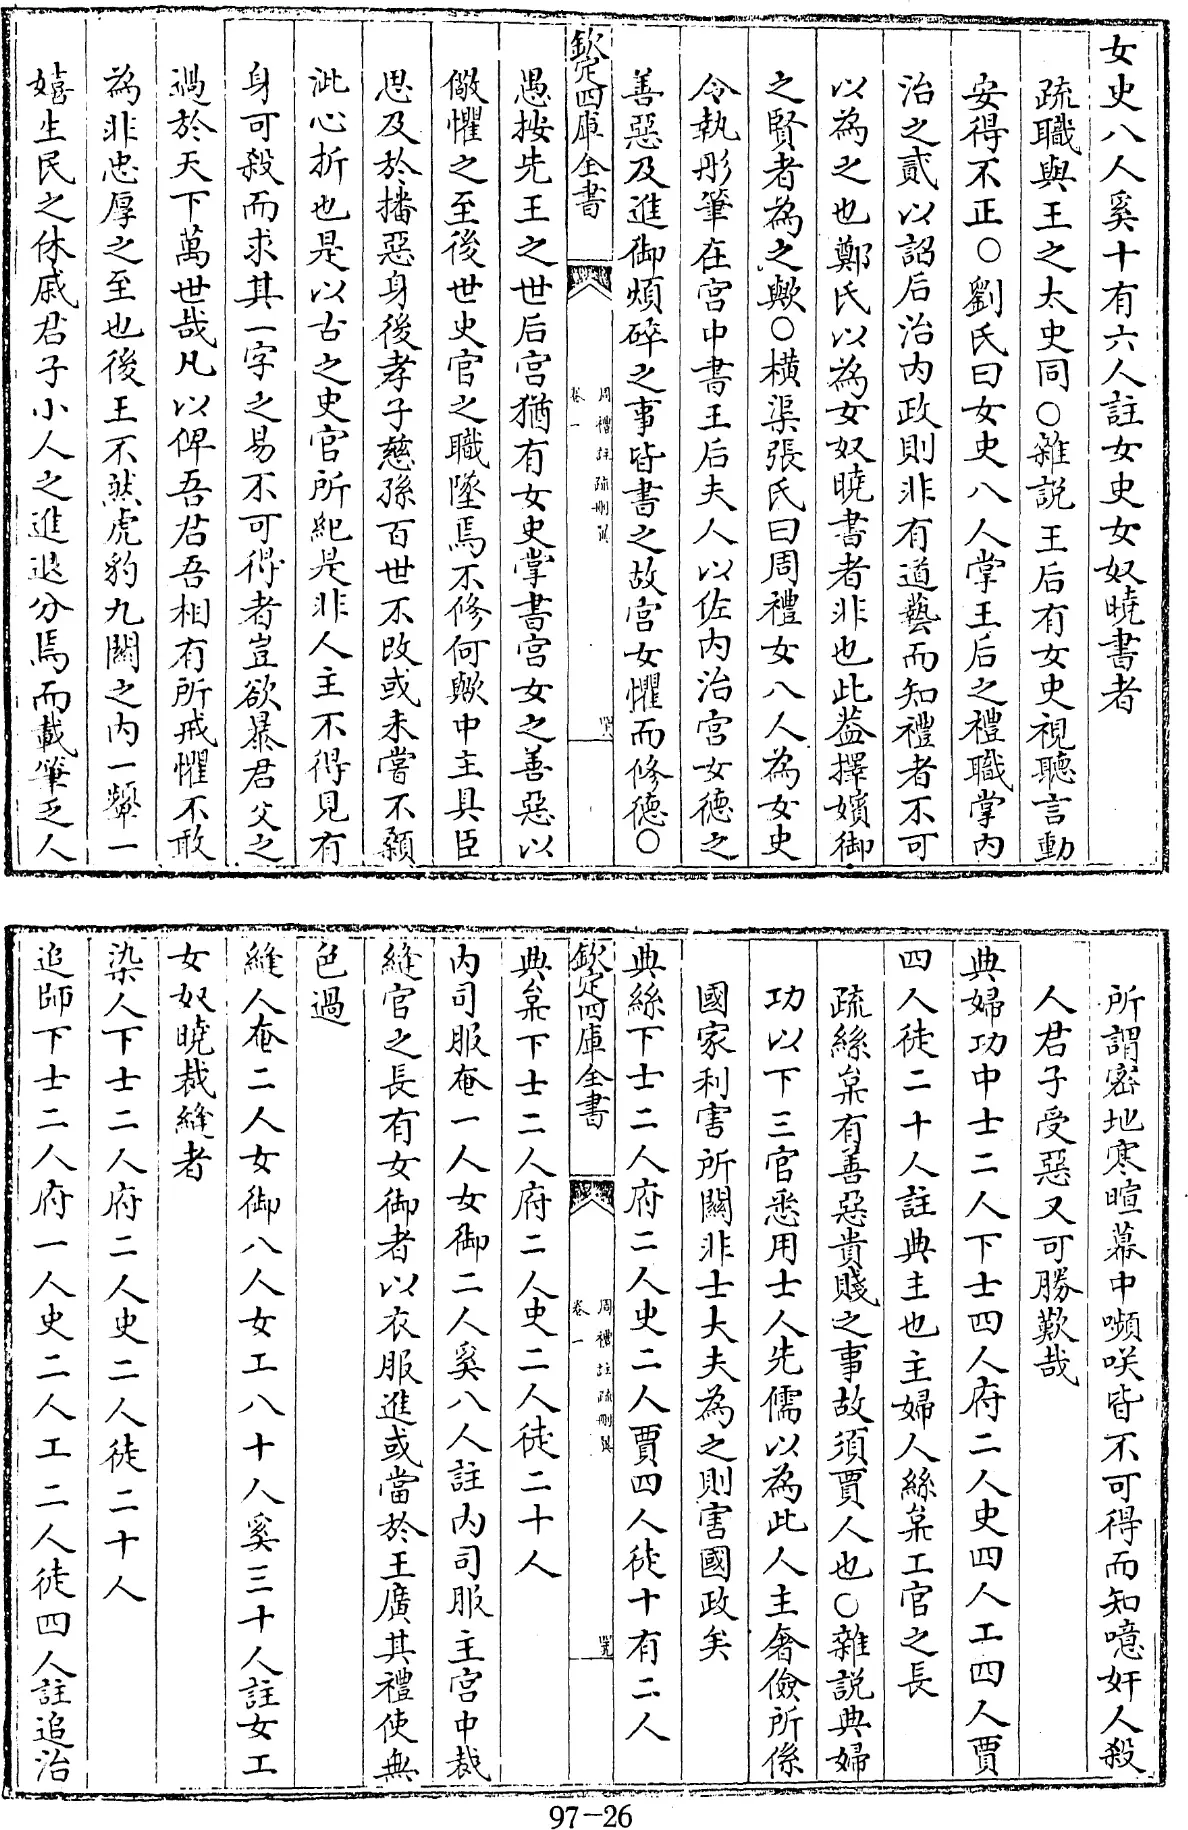 女史八人奚十有六人註女史女奴曉書者
疏職與王之太史同〇雜説王后有女史視聽言動
安得不正〇劉氏曰女史八人掌王后之禮職掌内
治之貳以詔后治内政則非有道藝而知禮者不可
以為之也鄭氏以為女奴曉書者非也此蓋擇嬪御
之賢者為之歟〇横渠張氏曰周禮女八人為女史
令執彤筆在宫中書王后夫人以佐内治宫女德之
善惡及進御煩碎之事皆書之故宫女懼而修德〇
欽定四庫全書
周禮註疏刪翼
卷一
愚按先王之世后宫猶有女史掌書宫女之善惡以
儆懼之至後世史官之職墜焉不修何歟中主具臣
思及於播惡身後孝子慈孫百世不改或未嘗不顙
泚心折也是以古之史官所紀是非人主不得見有
身可殺而求其一字之易不可得者豈欲暴君父之
過於天下萬世哉凡以俾吾君吾相有所戒懼不敢
為非忠厚之至也後王不然虎豹九關之内一顰一
嬉生民之休戚君子小人之進退分焉而載筆乏人
所謂密地寒暄幕中嚬咲皆不可得而知噫奸人殺
人君子受惡又可勝歎哉
典婦功中士二人下士四人府二人史四人工四人賈
四人徒二十人註典主也主婦人絲枲工官之長
疏絲枲有善惡貴賤之事故須賈人也〇雜説典婦
功以下三官悉用士人先儒以為此人主奢儉所係
國家利害所關非士大夫為之則害國政矣
典絲下士二人府二人史二人賈四人徒十有二人
欽定四庫全書
周禮註疏刪翼
卷一
典枲下士二人府二人史二人徒二十人
内司服奄一人女御二人奚八人註内司服主宫中裁
縫官之長有女御者以衣服進或當於王廣其禮使無
色過
縫人奄二人女御八人女工八十人奚三十人註女工
女奴曉裁縫者
染人下士二人府二人史二人徒二十人
追師下士二人府一人史二人工二人徒四人註追治
97-26